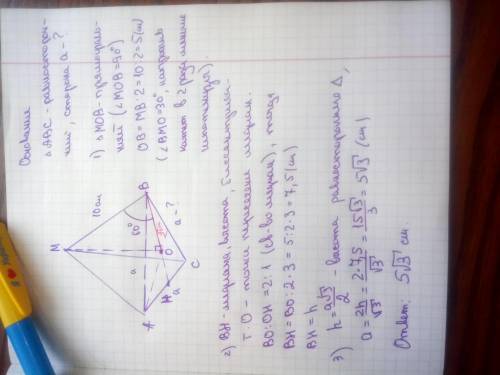 Основание
△ABC - равносторон-
ний, сторона a - ?
1) △MOB - прямоуголь-
ный (∠MOB=90°)
OB = MB : 2 = 10 : 2 = 5 (см)
(∠BMO=30°, напротив
катет в 2 раза меньше
гипотенузы).
M
10 см
B
60°
a
O
A
H
a
C
a - ?
2) BH - медиана, высота, биссектриса.
т. O - точка пересечения медиан.
BO : OH = 2 : 1 (св-во медиан), тогда
BH = BO : 2 · 3 = 5 : 2 · 3 = 7,5 (см)
BH = h
3) h = a√3/2 - высота равностороннего △,
a = 2h/√3 = 2·7,5/√3 = 15√3/3 = 5√3 (см)
Ответ: 5√3 см